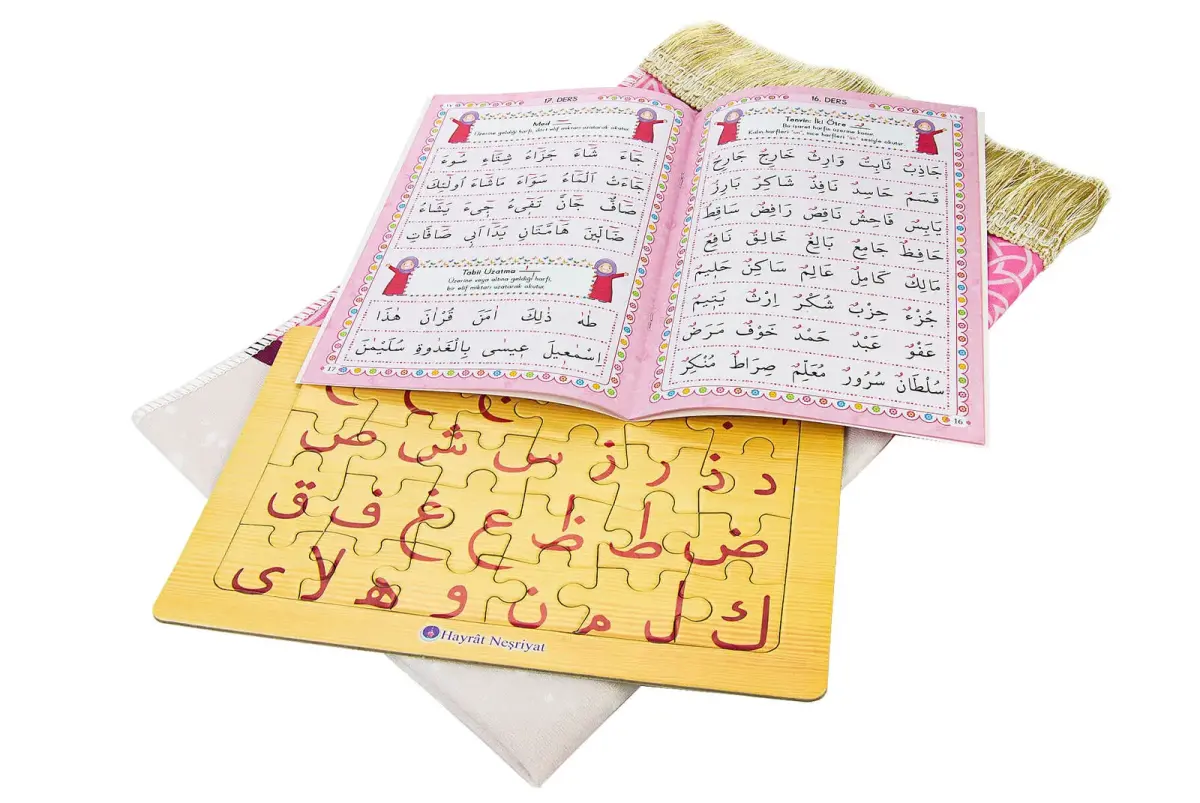 16. DERS
Tenvin: İki Ötre
Bu işaret harfin üzerine konur.
Kalın harfleri "un", ince harfleri "ün" sesiyle okutur.
جَاذِبٌ ثَابِتٌ وَارِثٌ خَارِجٌ جَارِحٌ
قَسَمٌ حَاسِدٌ نَافِذٌ شَاكِرٌ بَارِزٌ
يَابِسٌ فَاحِشٌ نَاقِصٌ رَافِضٌ سَاقِطٌ
حَافِظٌ جَامِعٌ بَالِغٌ خَالِقٌ نَافِعٌ
مَالِكٌ كَامِلٌ عَالِمٌ سَاكِنٌ حَلِيمٌ
جُزْءٌ حِزْبٌ شُكْرٌ اِرْثٌ يَتِيمٌ
عَفْوٌ عَبْدٌ حَمْدٌ خَوْفٌ مَرَضٌ
سُلْطَانٌ سُرُورٌ مُعَلِّمٌ صِرَاطٌ مُنْكِرٌ
16
17. DERS
Med
Üzerine geldiği harfi, dört elif miktarı uzatarak okutur.
جَٓاءَ شَٓاءَ جَزَٓاءُ شِتَٓاءِ سُٓوءَ
جَٓاءَتْ اَلْمَٓاءُ سَوَٓاءَ مَاشَٓاءَ اُولٰٓئِكَ
صَٓافٌّ جَٓانٌّ تَفِٓىءُ جِٓىءَ يَشَٓاءُ
ضَٓالّ۪ينَ هَٓامَّتَانِ يَدَٓا اَب۪ى صَٓافَّاتٍ
Tabii Uzatma
Üzerine veya altına geldiği harfi,
bir elif miktarı uzatarak okutur.
طٰهٰ ذٰلِكَ اٰمَنَ قُرْاٰنَ هٰذَا
اِسْمٰع۪يلَ ع۪يسٰى بِالْغَدٰوةِ سُلَيْمٰنَ
17
د ذ ر ز س ش ص
ض ط ظ ع غ ف ق
ك ل م ن و ه لا ى
Hayrât Neşriyat